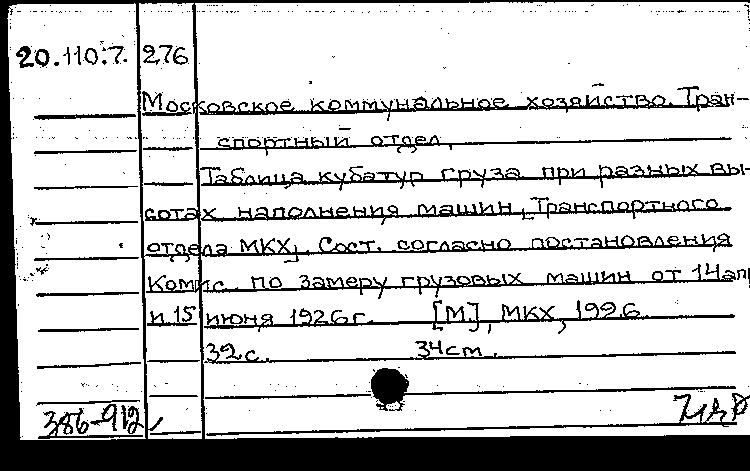 20.110.7. 276
Московское коммунальное хозяйство. Тран-
спортный отдел.
Таблица кубатур груза при разных вы-
сотах наполнения машин [Транспортного
отдела МКХ]. Сост. согласно постановления
Комис. по замеру грузовых машин от 14 апр
и 15 июня 1926 г. [М], МКХ, 1926.
32 с. 34 cm.
386-912